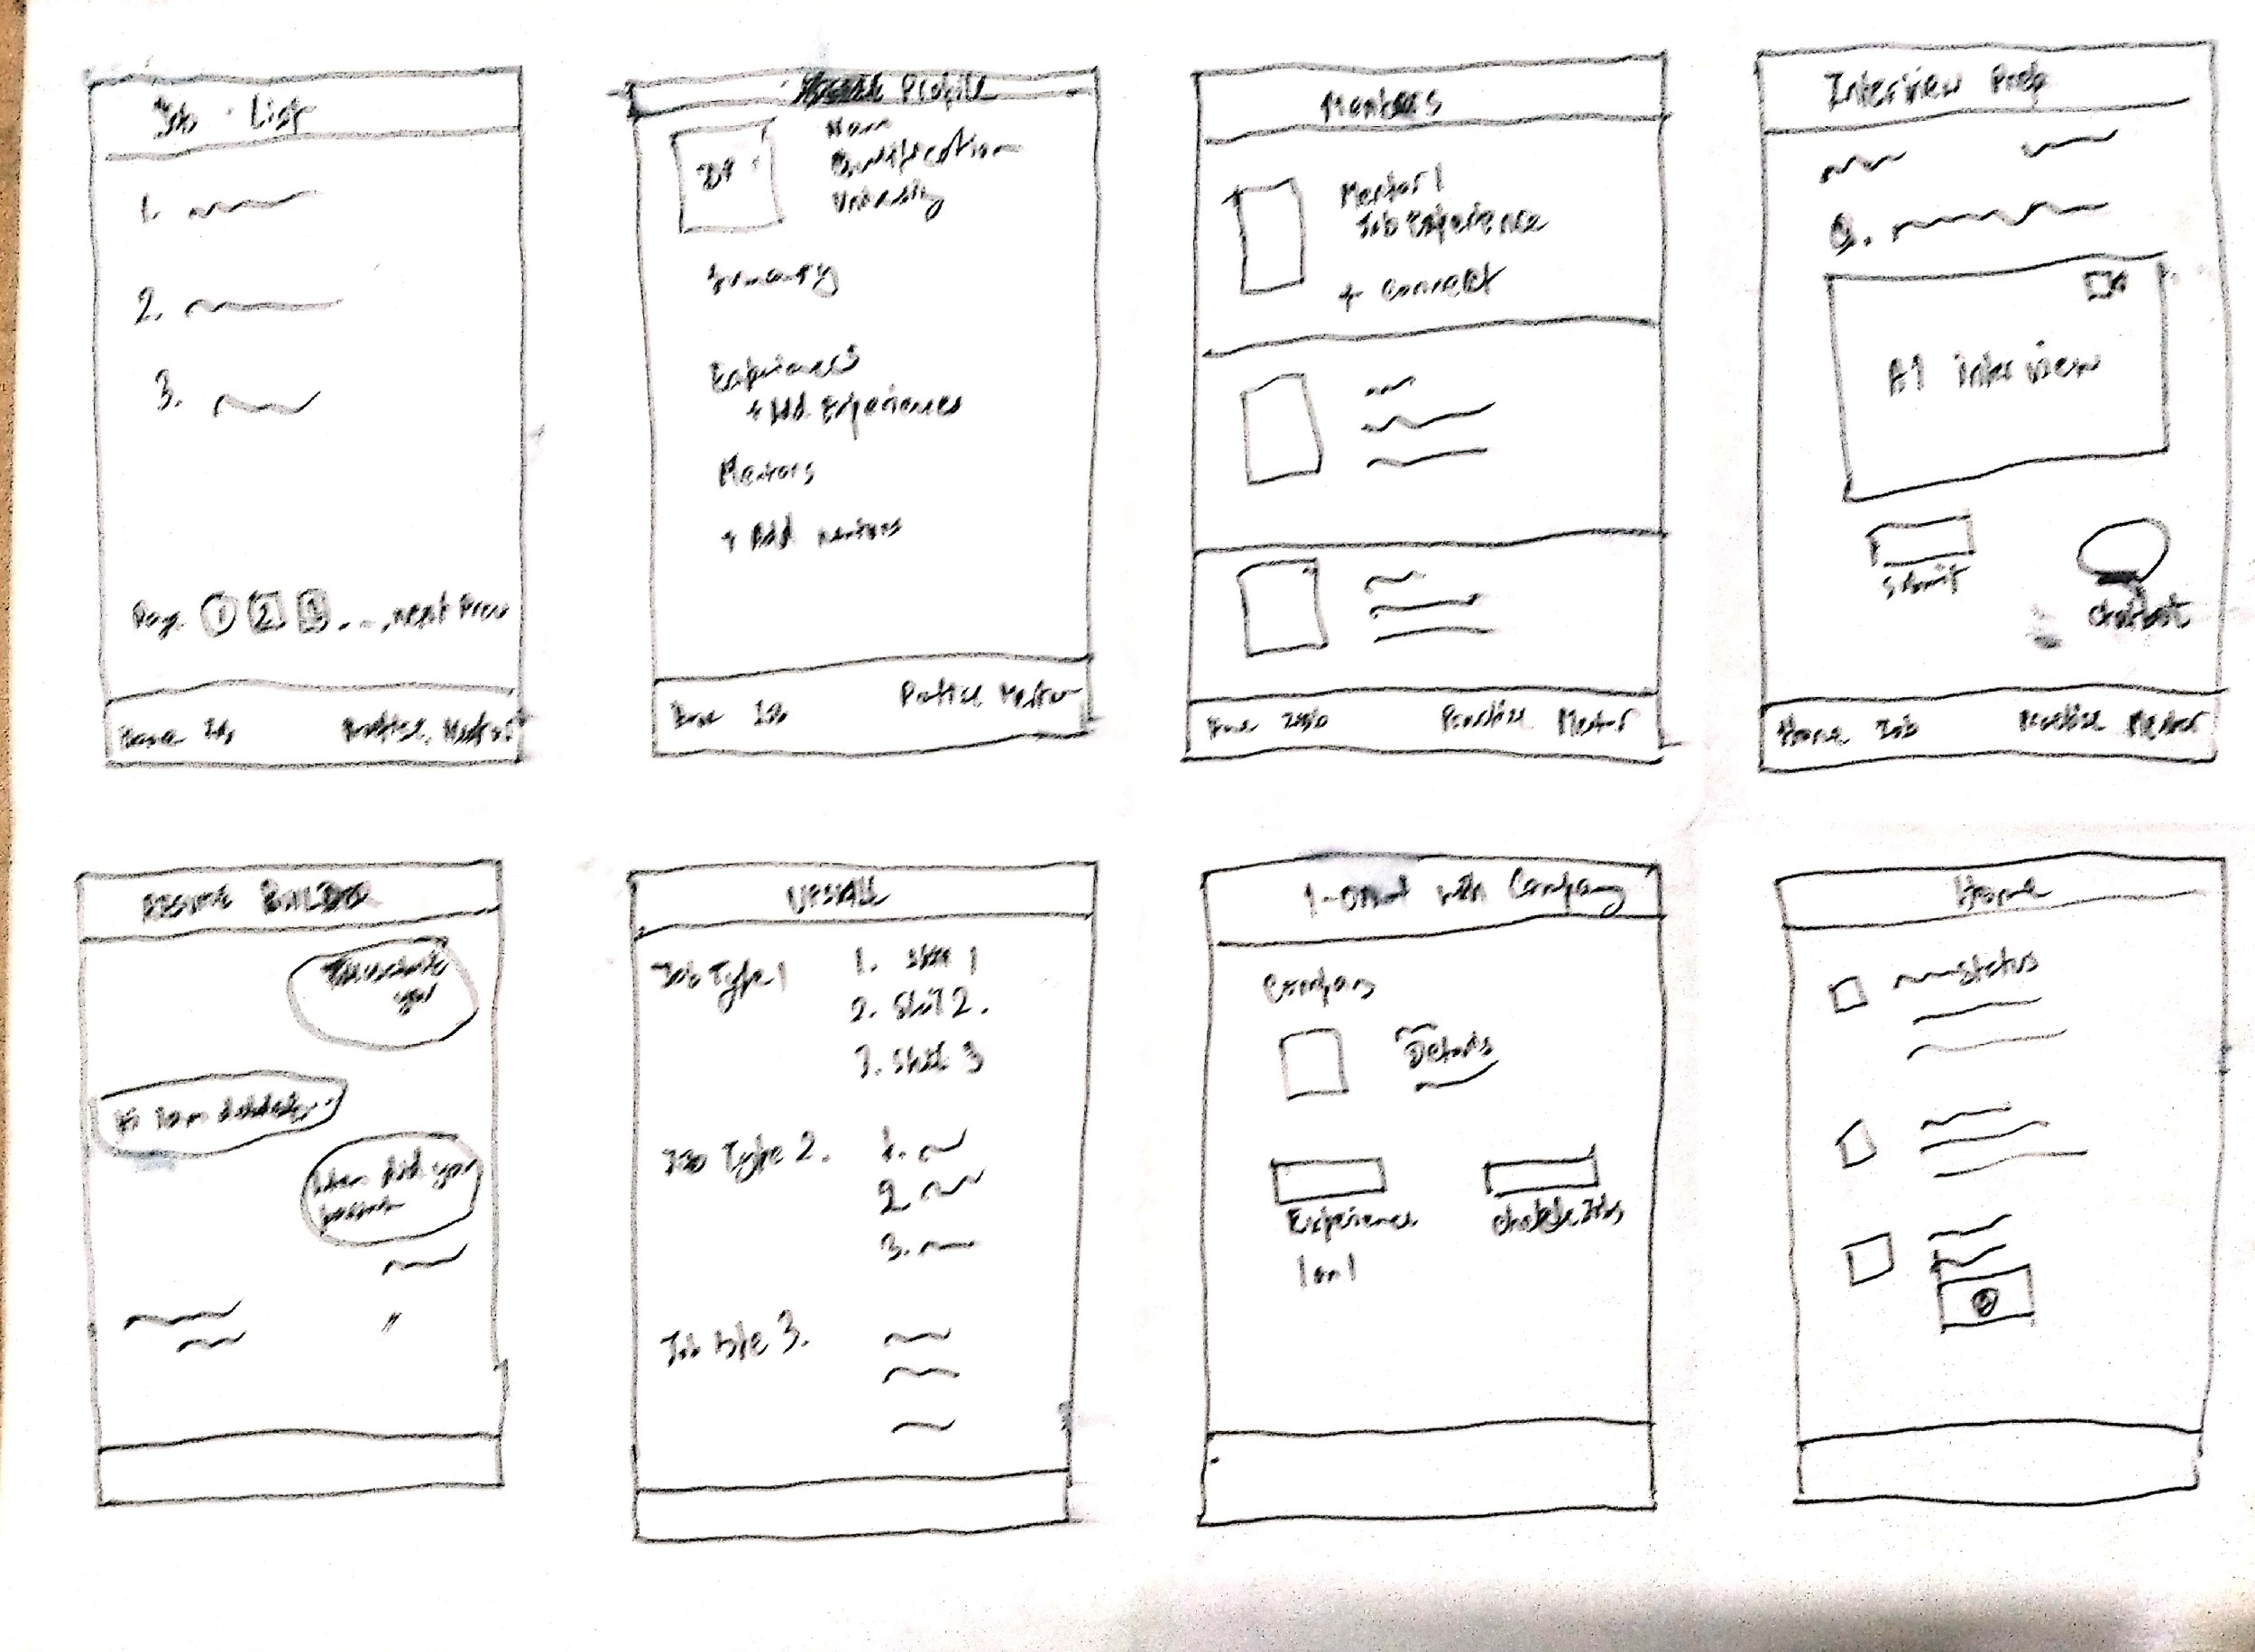 Job List
1.
2.
3.
Page 1 2 3 ..., next Prev
Home Job Mentor
Profile
DP
Name
Qualification
Summary
Experiences
+ Add Experiences
Mentors
+ Add mentors
Job Mentor
Mentors
Mentor 1
Job Experience
+ Connect
Practise Mentor
Interview Prep
Q.
AI interview
Submit
Chatbot
Home Job Practise Mentor
RESUME BUILDER
you
Hi I am
When did you
UPSKILL
Job Type 1
1. Skill 1
2. Skill 2.
3. Skill 3
Job Type 2.
1.
2
3.
Job type 3.
1-On-1 with Company
Company
Details
Experience
1 on 1
Home
Status